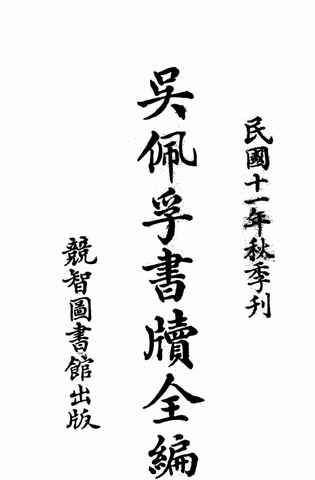 民國十一年秋季刊
吳佩孚書牘全編
競智圖書館出版